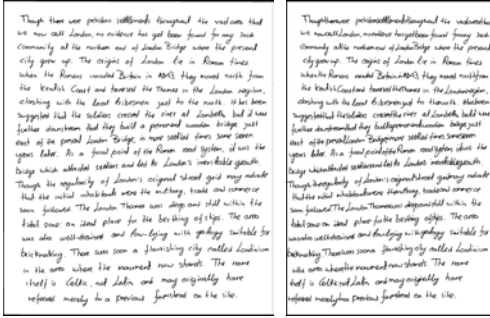 Though there were prehistoric settlements throughout the vast area that
we now call London, no evidence has yet been found for any such
community at the northern end of London Bridge where the present
city grew up. The origins of London lie in Roman times.
When the Romans invaded Britain in AD43, they moved north from
the Kentish Coast and traversed the Thames in the London region,
clashing with the local tribesmen just to the north. It has been
suggested that the soldiers crossed the river at Lambeth, but it was
further downstream that they built a permanent wooden bridge, just
east of the present London Bridge, in more settled times some seven
years later. As a focal point of the Roman road system, it was the
bridge which attracted settlers and led to London's inevitable growth.
Though the regularity of London's original street grid may indicate
that the initial inhabitants were the military, trade and commerce
soon followed. The London Thames was deep and still within the
tidal zone: an ideal place for the berthing of ships. The area
was also well-drained and low-lying with geology suitable for
brickmaking. There was soon a flourishing city called Londinium
in the area where the monument now stands. The name
itself is Celtic, not Latin and may originally have
referred merely to a previous farmstead on the site.
Though there were prehistoric settlements throughout the vast area that
we now call London, no evidence has yet been found for any such
community at the northern end of London Bridge where the present
city grew up. The origins of London lie in Roman times.
When the Romans invaded Britain in AD43, they moved north from
the Kentish Coast and traversed the Thames in the London region,
clashing with the local tribesmen just to the north. It has been
suggested that the soldiers crossed the river at Lambeth, but it was
further downstream that they built a permanent wooden bridge, just
east of the present London Bridge, in more settled times some seven
years later. As a focal point of the Roman road system, it was the
bridge which attracted settlers and led to London's inevitable growth.
Though the regularity of London's original street grid may indicate
that the initial inhabitants were the military, trade and commerce
soon followed. The London Thames was deep and still within the
tidal zone: an ideal place for the berthing of ships. The area
was also well-drained and low-lying with geology suitable for
brickmaking. There was soon a flourishing city called Londinium
in the area where the monument now stands. The name
itself is Celtic, not Latin and may originally have
referred merely to a previous farmstead on the site.